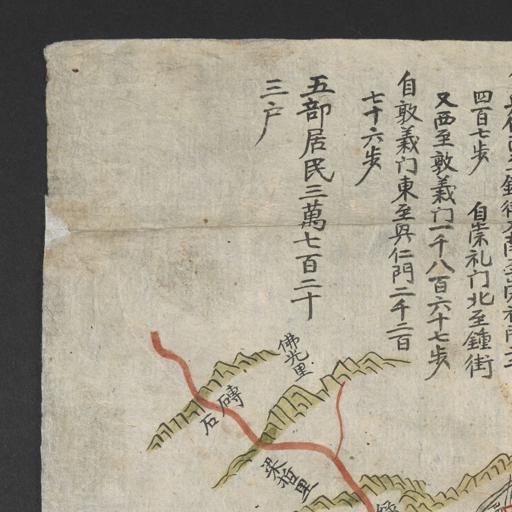 四百七步　自崇礼门北至鐘街
又西至敦義门一千八百六十七步
自敦義门東至興仁門二千二百
七十六步
五部居民三萬七百二十
三户
佛光里
磚石
梁哲里